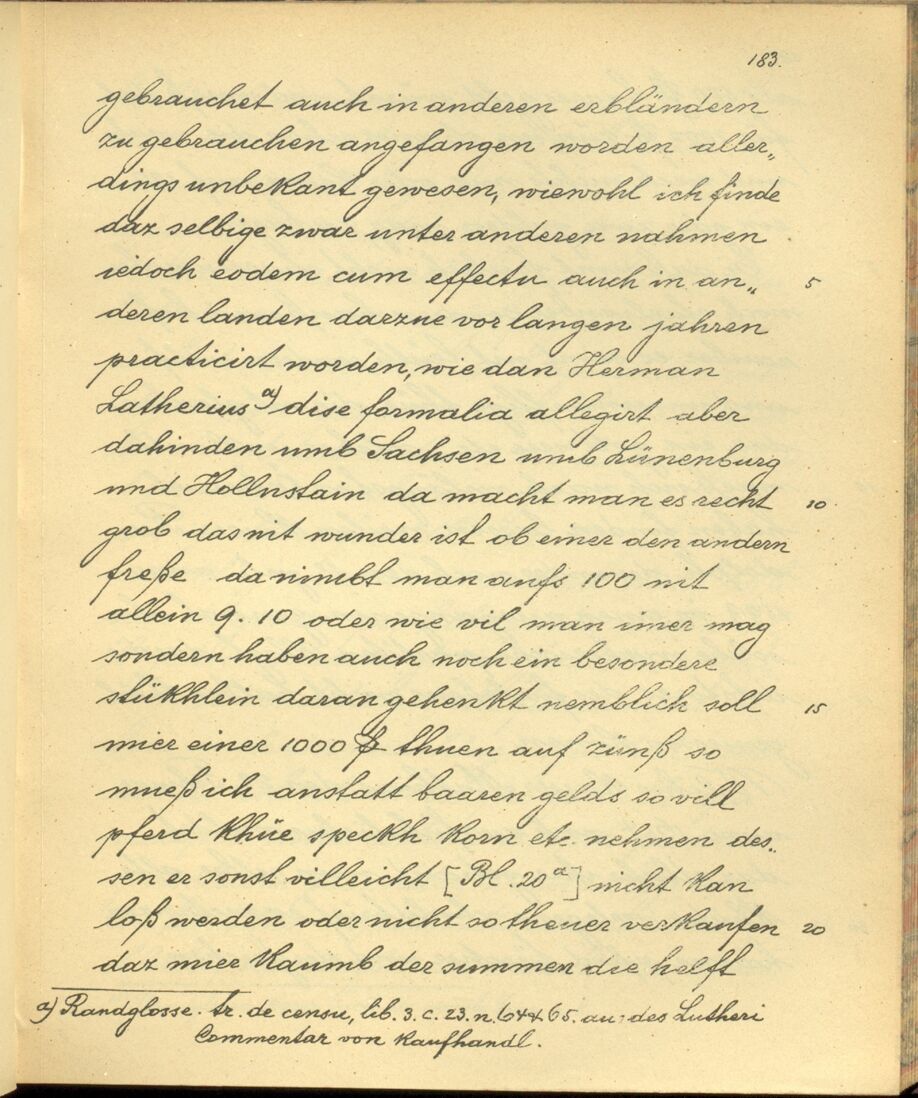 183.
gebrauchet auch in anderen erbländern
zu gebrauchen angefangen worden aller„
dings unbekant gewesen, wiewohl ich finde
daz selbige zwar unter anderen nahmen
iedoch eodem cum effectu auch in an„ 5
deren landen darzue vor langen jahren
practicirt worden, wie dan Herman
Latherius a) dise formalia allegirt aber
dahinden umb Sachsen umb Lünenburg
und Hollnstain da macht man es recht 10
grob das nit wunder ist ob einer den andern
freße da nimbt man aufs 100 nit
allein 9. 10 oder wie vil man imer mag
sondern haben auch noch ein besondere
stükhlein daran gehenkt nemblich soll 15
mier einer 1000 f thuen auf zünß so
mueß ich anstatt baaren gelds so vill
pferd khüe speckh korn etc. nehmen des„
sen er sonst villeicht [Bl. 20 a] nicht kan
loß werden oder nicht so theuer verkaufen 20
daz mier kaumb der summen die helft
a) Randglosse. tr. de censu, lib. 3. c. 23. n. 64 & 65. au: des Lutheri
Commentar von kaufhandl.